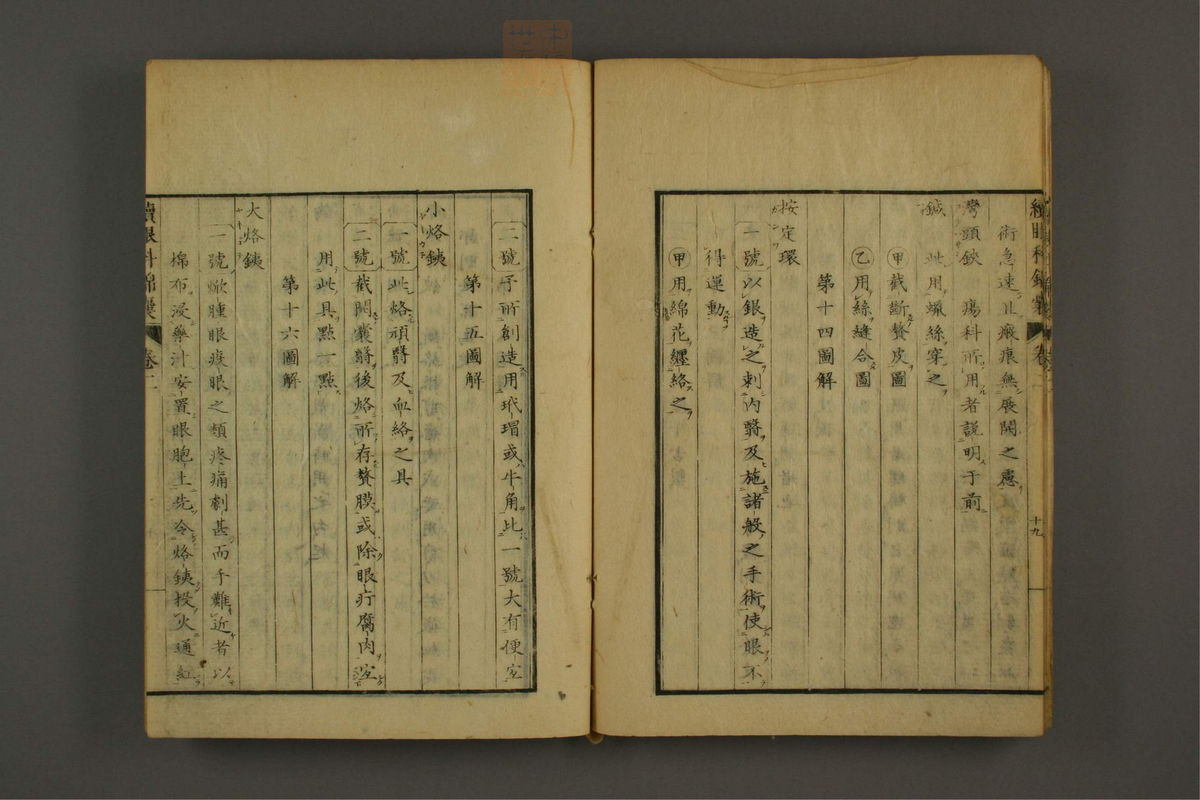 術急速且瘢痕無展開之慮
彎頭鋏　瘍科所用者説明于前
鍼　此用蠟絲穿之
甲截斷贅皮圖
乙用絲縫合圖
第十四圖解
按定環
一號以銀造之刺內翳及施諸般之手術使眼不
得運動
甲用綿花纒絡之
十九
二號予所創造用玳瑁或牛角比一號大有便宜
第十五圖解
小烙銕
一號此烙頑翳及血絡之具
二號截開囊翳後烙所存贅膜或除眼疔腐肉宜
用此具點一點
第十六圖解
大烙銕
一號焮腫眼痰眼之類疼痛劇甚而手難近者以
棉布浸藥汁安置眼胞上先令烙銕投火通紅
續眼科錦囊　卷二